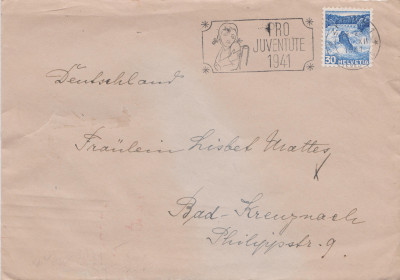 PRO
JUVENTUTE
1941
30 HELVETIA
Deutschland
Fräulein Lisbet Mattes
Bad-Kreuznach
Philippstr. 9.